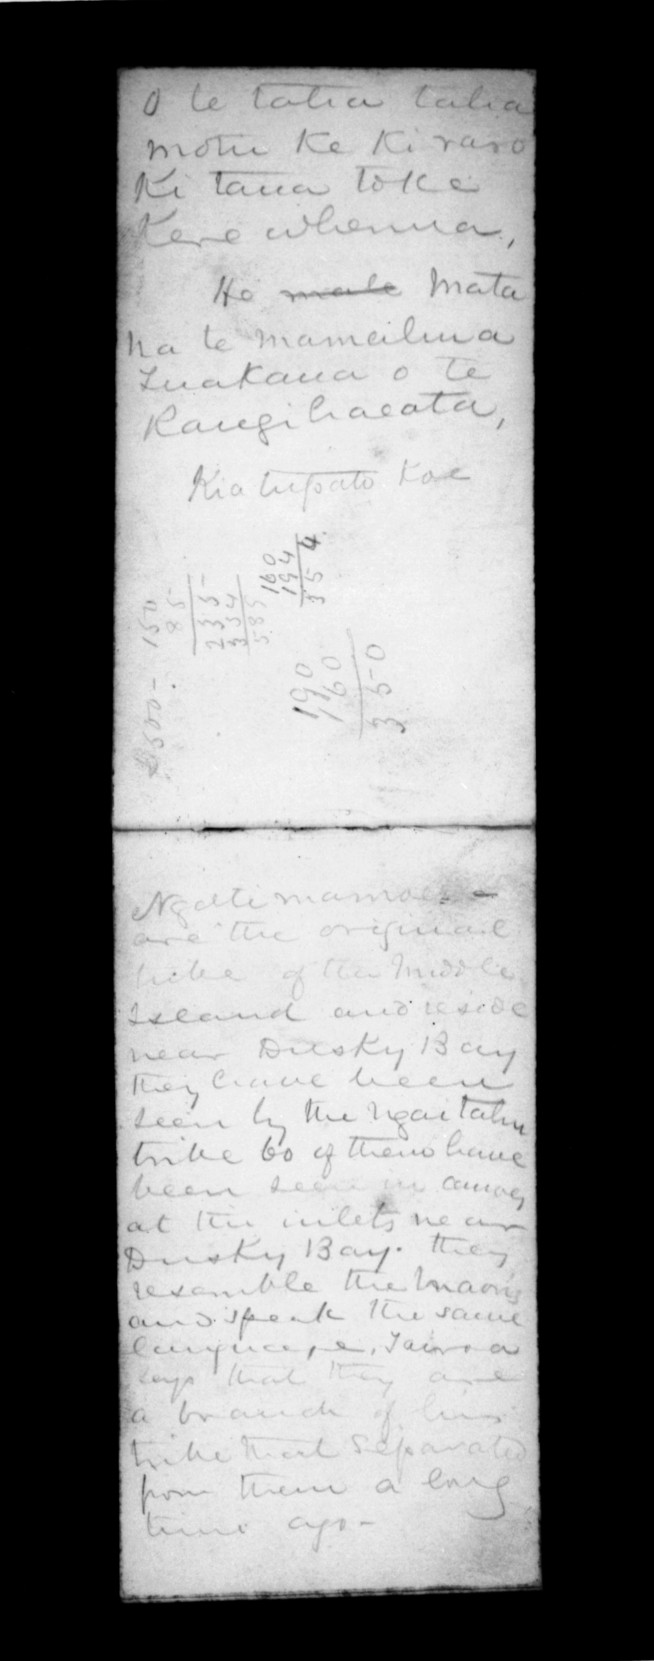 O te taha taha
motu ke ki raro
Ki taua toke
Kere whenua,
He ~~mate~~ mata
na te mamaihua
Tuakana o te
Rangihaeata,
Kia tupato Koe
160
194
354
150
85
235
354
585
£500 -
190
160
350
Ngatimamoe -
are the original
tribe of the Middle
Island and reside
near Dusky Bay
they have been
seen by the Ngaitahu
tribe 60 of them have
been seen in canoes
at the inlets near
Dusky Bay. they
resemble the Maoris
and speak the same
language,
says that they are
a branch of his
tribe that separated
from them a long
time ago -